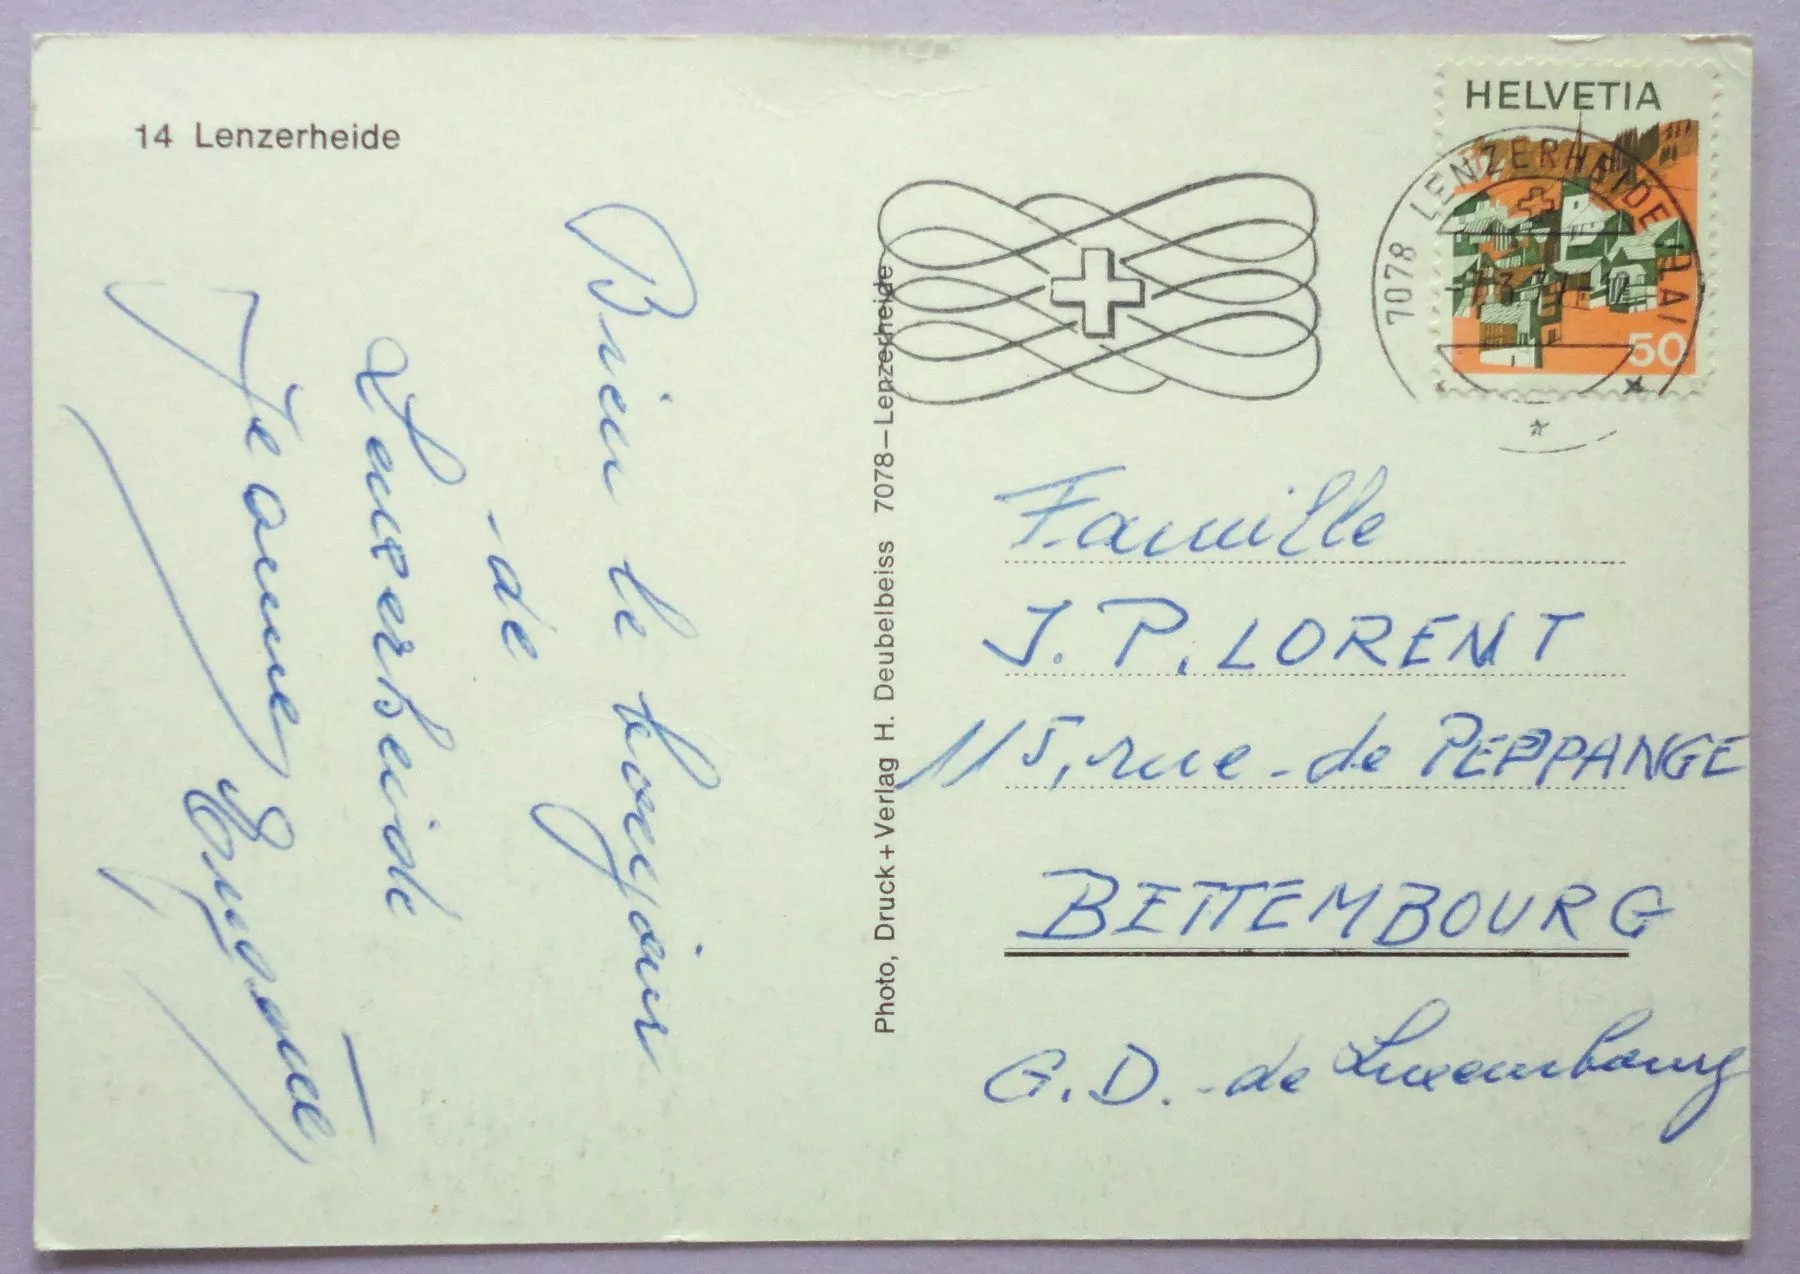 14 Lenzerheide
Bien le bonjour
de
Lenzerheide
Jeanne
Photo, Druck + Verlag H. Deubelbeiss 7078 – Lenzerheide
HELVETIA
50
7078 LENZERHEIDE/LAI
Famille
J. P. LORENT
115, rue de PEPPANGE
BETTEMBOURG
G. D. de Luxembourg